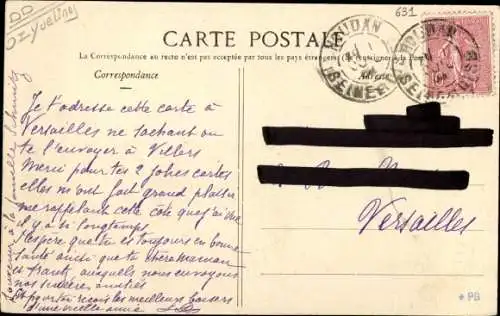 DD
Yvelines
631
CARTE POSTALE
La Correspondance au recto n'est pas acceptée par tous les pays étrangers (Se renseigner à la Poste)
Correspondance
Adresse
HOUDAN
SEINE
HOUDAN
SEINE
Je t'adresse cette carte à
Versailles ne sachant où
te l'envoyer à Villers
Merci pour tes 2 jolies cartes
elles m'ont fait grand plaisir
me rappelant cette côte que j'ai vue
il y a si longtemps.
J'espère que tu es toujours en bonne
santé ainsi que ta chère maman
et frants auxquels nous envoyons
nos sincères amitiés
Et pour toi reçois les meilleurs baisers
d'une vieille amie
Souvenir à la famille
Versailles
+ PB